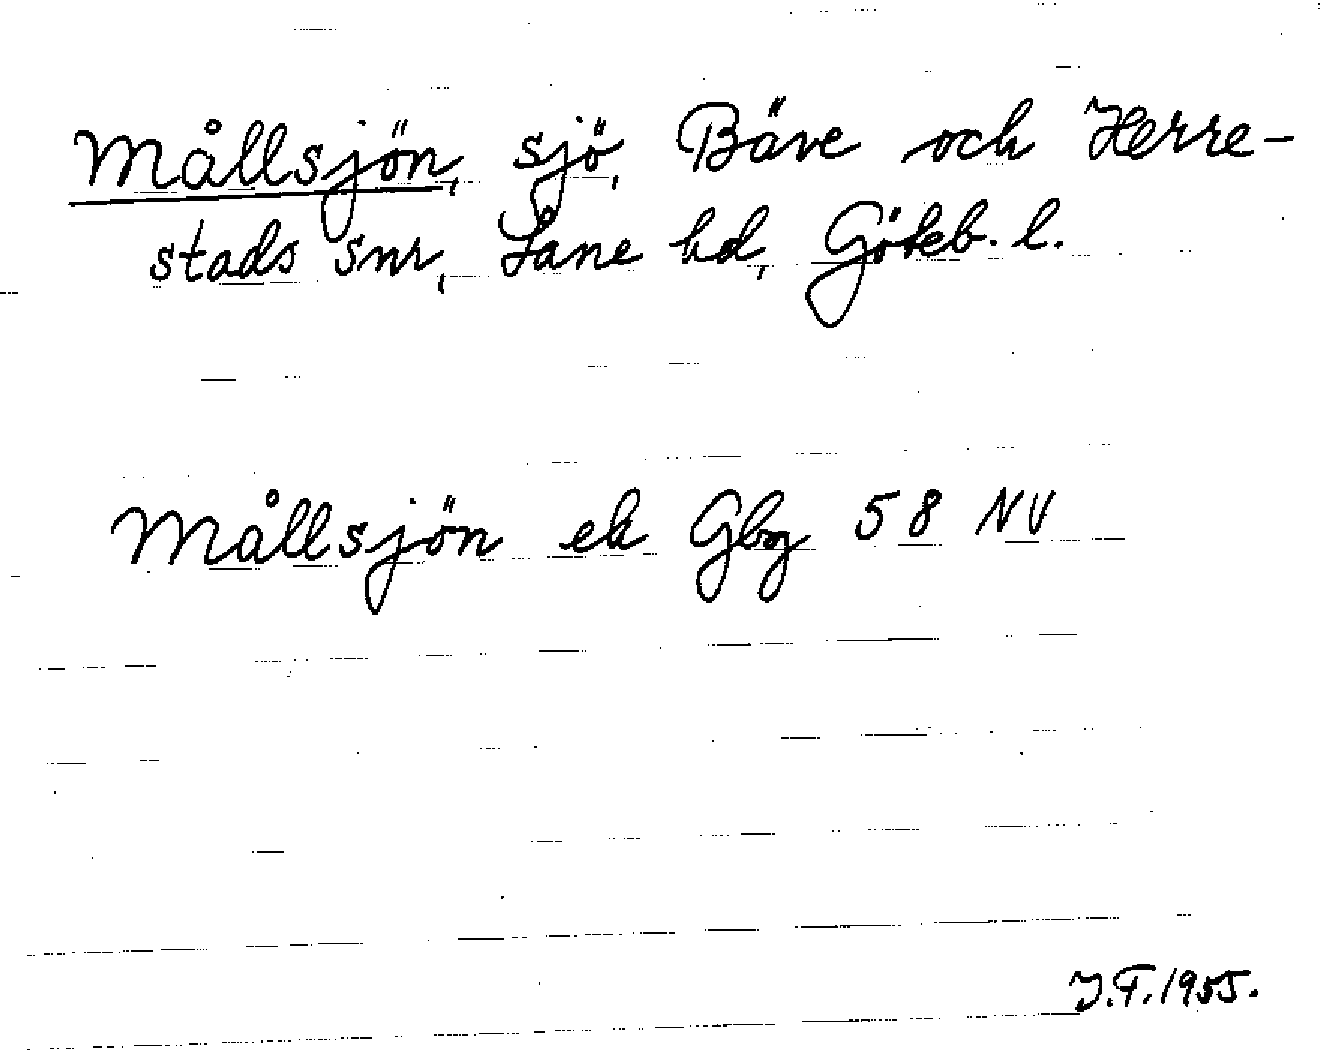 Mållsjön, sjö, Bäve och Herre-
stads snr, Lane hd, Göteb. l.
Mållsjön ek Gbg 58 NV
J.T. 1955.